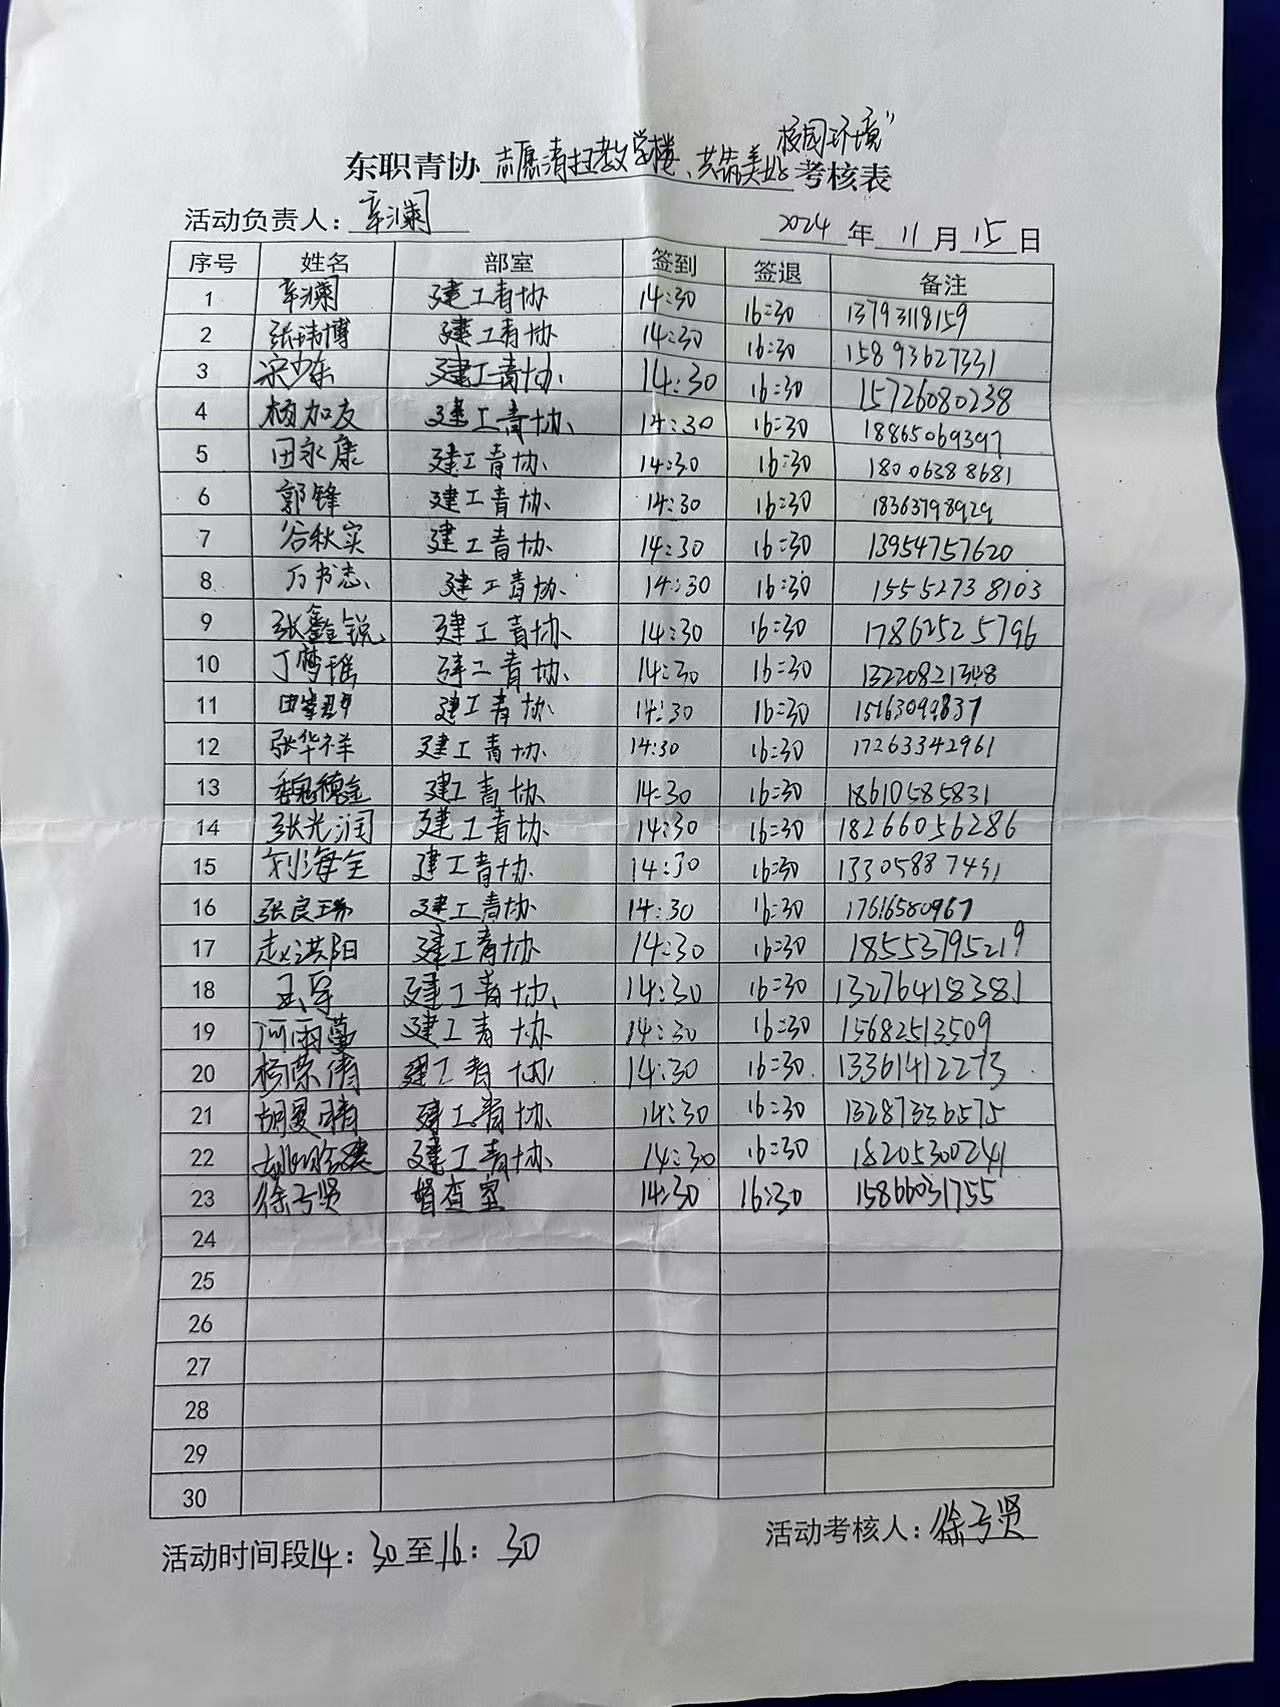 校园环境"
东职青协 志愿清扫教学楼、共筑美好 考核表
活动负责人：辛澜 2024 年 11 月 15 日
序号 姓名 部室 签到 签退 备注
1 辛澜 建工青协 14:30 16:30 13793118159
2 张玮博 建工青协 14:30 16:30 15893627331
3 宋少东 建工青协 14:30 16:30 15726080238
4 杨加友 建工青协 14:30 16:30 18865069397
5 田永康 建工青协 14:30 16:30 18006388681
6 郭锋 建工青协 14:30 16:30 18363798929
7 谷秋实 建工青协 14:30 16:30 13954757620
8 万书志 建工青协 14:30 16:30 15552738103
9 张鑫锐 建工青协 14:30 16:30 17862525796
10 丁梦瑶 建工青协 14:30 16:30 13220821348
11 建工青协 14:30 16:30 15163099837
12 张华祥 建工青协 14:30 16:30 17263342961
13 魏德金 建工青协 14:30 16:30 18610585831
14 张光润 建工青协 14:30 16:30 18266056286
15 刘海全 建工青协 14:30 16:30 13305887451
16 张良瑞 建工青协 14:30 16:30 17616580967
17 赵洪阳 建工青协 14:30 16:30 18553795219
18 建工青协 14:30 16:30 13276418381
19 建工青协 14:30 16:30 15682513509
20 杨荣倩 建工青协 14:30 16:30 13361412273
21 胡夏晴 建工青协 14:30 16:30 13287336575
22 建工青协 14:30 16:30 18205300241
23 徐子贤 督查室 14:30 16:30 15866031755
24
25
26
27
28
29
30
活动时间段14：30至16：30 活动考核人：徐子贤